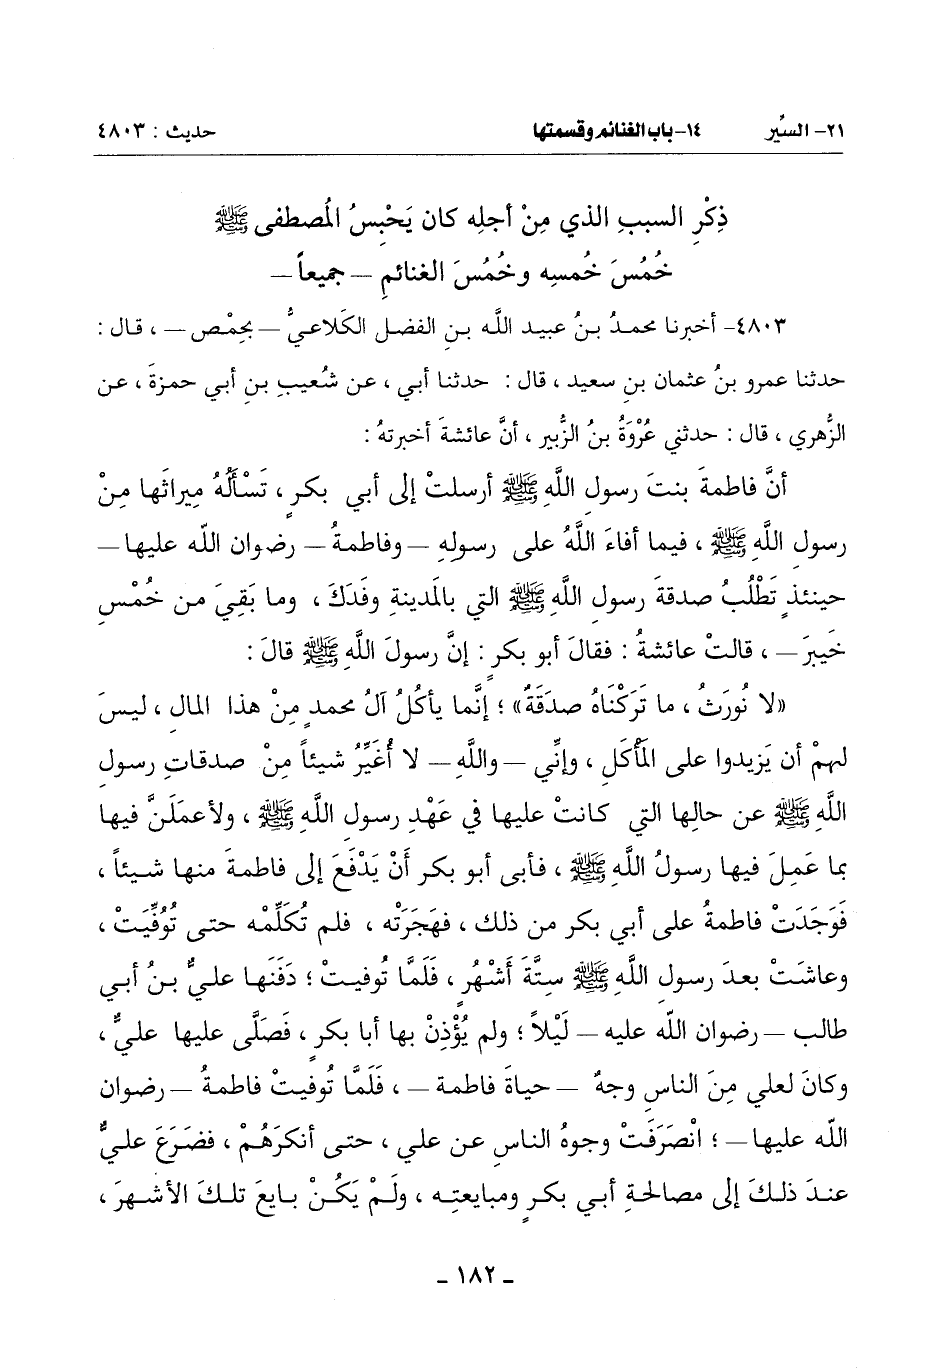 ٢١- السِّير ١٤- باب الغنائم وقسمتها حديث : ٤٨٠٣
ذِكْرِ السببِ الذي مِنْ أجلِه كان يَحْبِسُ المُصطفى ﷺ
خُمُسَ خُمسِه وخُمُسَ الغنائمِ — جميعاً —
٤٨٠٣- أخبرنا محمدُ بنُ عبيد الله بنِ الفضل الكَلاعيُّ — بحِمْص — ، قال :
حدثنا عمرو بنُ عثمان بنِ سعيد ، قال : حدثنا أبي ، عن شُعيبِ بنِ أبي حمزةَ ، عن
الزُّهري ، قال : حدثني عُرْوَةُ بنُ الزُّبير ، أنَّ عائشةَ أخبرتهُ :
أنَّ فاطمةَ بنتَ رسولِ اللَّهِ ﷺ أرسلتْ إلى أبي بكرٍ ، تَسْأَلُهُ ميراثَها مِنْ
رسولِ اللَّهِ ﷺ ، فيما أفاءَ اللَّهُ على رسولِهِ — وفاطمةُ — رضوان الله عليها —
حينئذٍ تَطْلُبُ صدقةَ رسولِ اللَّهِ ﷺ التي بالَمدينةِ وفَدَكَ ، وما بَقِيَ من خُمْسِ
خَيبرَ — ، قالتْ عائشةُ : فقالَ أبو بكرٍ : إنَّ رسولَ اللَّهِ ﷺ قالَ :
«لا نُورَثُ ، ما تَرَكْنَاهُ صدَقَةٌ» ؛ إنَّما يأكُلُ آلُ محمدٍ مِنْ هذا المالِ ، ليسَ
لهمْ أن يَزيدوا على المَأْكَلِ ، وإنِّي — واللَّهِ — لا أُغَيِّرُ شيئاً مِنْ صدقاتِ رسولِ
اللَّهِ ﷺ عن حالِها التي كانتْ عليها في عَهْدِ رسولِ اللَّهِ ﷺ ، ولأعمَلَنَّ فيها
بما عَمِلَ فيها رسولُ اللَّهِ ﷺ ، فأبى أبو بكر أَنْ يَدْفَعَ إلى فاطمةَ منها شيئاً ،
فَوَجَدَتْ فاطمةُ على أبي بكر من ذلك ، فهَجَرَتْه ، فلم تُكَلِّمْه حتى تُوُفِّيَتْ ،
وعاشَتْ بعدَ رسولِ اللَّهِ ﷺ ستَّةَ أشْهُرٍ ، فَلَمَّا تُوفيتْ ؛ دَفَنَها عليُّ بنُ أبي
طالب — رضوان الله عليه — لَيْلاً ؛ ولم يُؤْذِنْ بها أبا بكرٍ ، فَصَلَّى عليها عليٌّ ،
وكانَ لعلي مِنَ الناسِ وجهٌ — حياةَ فاطمة — ، فَلَمَّا تُوفيتْ فاطمةُ — رضوان
الله عليها — ؛ انْصَرَفَتْ وجوهُ الناسِ عن علي ، حتى أنكرَهُمْ ، فضَرَعَ عليٌّ
عندَ ذلكَ إلى مصالحةِ أبي بكرٍ ومبايعتِه ، ولَمْ يَكُنْ بايعَ تلكَ الأشهرَ ،
- ١٨٢ -